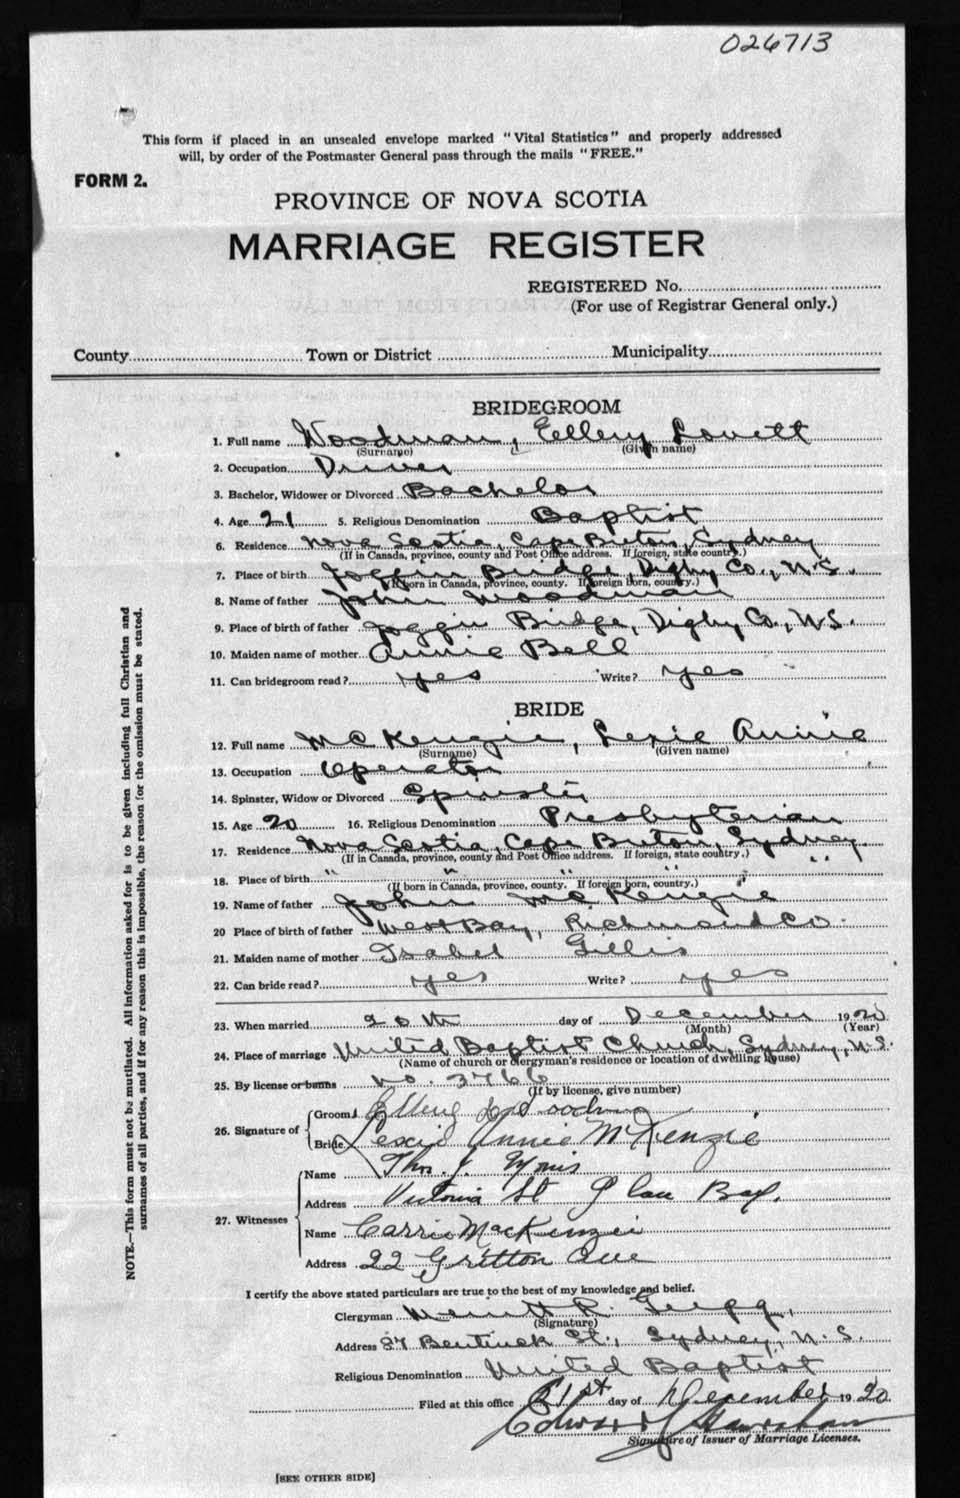 026713
This form if placed in an unsealed envelope marked "Vital Statistics" and properly addressed
will, by order of the Postmaster General pass through the mails "FREE."
FORM 2.
PROVINCE OF NOVA SCOTIA
MARRIAGE REGISTER
REGISTERED No.
(For use of Registrar General only.)
County Town or District Municipality
BRIDEGROOM
1. Full name Woodman, Ellery Lovett
(Surname) (Given name)
2. Occupation Driver
3. Bachelor, Widower or Divorced Bachelor
4. Age 21 5. Religious Denomination Baptist
6. Residence Nova Scotia, Cape Breton, Sydney
(If in Canada, province, county and Post Office address. If foreign, state country.)
7. Place of birth Joggin Bridge, Digby Co., N.S.
(If born in Canada, province, county. If foreign born, country.)
8. Name of father John Woodman
9. Place of birth of father Joggin Bridge, Digby Co., N.S.
10. Maiden name of mother Annie Bell
11. Can bridegroom read? yes Write? yes
BRIDE
12. Full name McKenzie, Lexie Annie
(Surname) (Given name)
13. Occupation Operator
14. Spinster, Widow or Divorced Spinster
15. Age 20 16. Religious Denomination Presbyterian
17. Residence Nova Scotia, Cape Breton, Sydney
(If in Canada, province, county and Post Office address. If foreign, state country.)
18. Place of birth " " " " "
(If born in Canada, province, county. If foreign born, country.)
19. Name of father John McKenzie
20 Place of birth of father West Bay, Richmond Co.
21. Maiden name of mother Isabel Gillis
22. Can bride read? yes Write? yes
23. When married 20th day of December 1920
(Month) (Year)
24. Place of marriage United Baptist Church, Sydney, N.S.
(Name of church or clergyman's residence or location of dwelling house)
25. By license or banns No. 3766
(If by license, give number)
26. Signature of Groom Ellery Woodman
Bride Lexie Annie McKenzie
27. Witnesses
Name Thos. J.
Address Victoria St Glace Bay.
Name Carrie MacKenzie
Address 22 Gritton Ave
I certify the above stated particulars are true to the best of my knowledge and belief.
Clergyman Merritt R.
(Signature)
Address 37 Bentinck St., Sydney, N.S.
Religious Denomination United Baptist
Filed at this office 21st day of December 1920
Edward
Signature of Issuer of Marriage Licenses.
[SEE OTHER SIDE]
NOTE.—This form must not be mutilated. All information asked for is to be given including full Christian and
surnames of all parties, and if for any reason this is impossible, the reason for the omission must be stated.